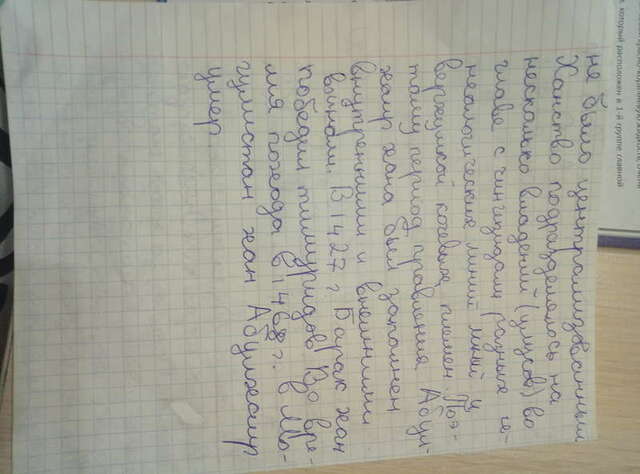 который расположен в 1-й группе главной
не было централизованным
Ханство подразделялось на
несколько владений (улусов) во
главе с чингизидами (разные ге-
неалогические линий линий и
верхушкой кочевых племен. Поэ-
тому период правления Абул-
хаир хана был заполнен
внутренними и внешними
войнами. В 1427 г. Барак хан
победил тимуридов. Во вре-
мя похода в 1468 г. в Мо-
гулистан хан Абулхаир
умер